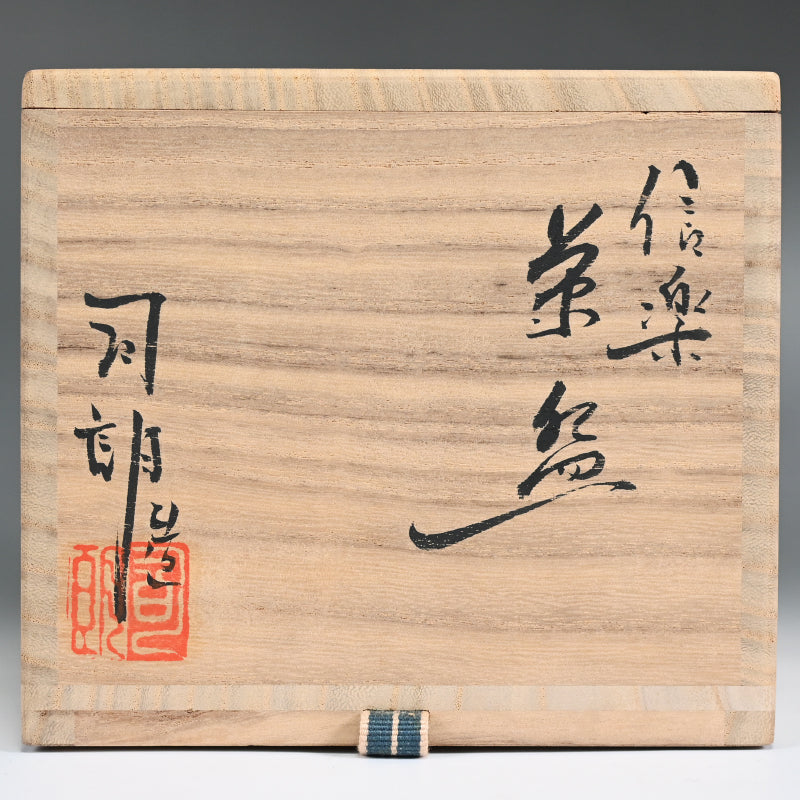 信楽
茶盌
司朗造